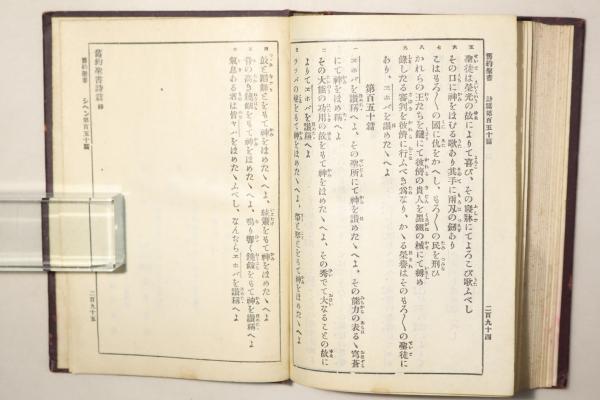 舊約聖書 詩篇第百五十篇 二百九十四
五 聖徒は榮光の故によりて喜び、その寢牀にてよろこび歌ふべし
六 その口に神をほむる歌あり其手に兩刃の劍あり
七 こはもろ〳〵の國に仇をかへし、もろ〳〵の民を刑ひ
八 かれらの王たちを鏈にて彼儕の貴人を黑鐵の械にて縛め
九 錄したる審判を彼儕に行ふべき爲なり、かゝる榮譽はそのもろ〳〵の聖徒に
あり、エホバを讃めたゝへよ
第百五十篇
一 エホバを讃稱へよ、その聖所にて神を讃めたゝへよ、その能力の表るゝ穹蒼
にて神をほめ稱へよ
二 その大能の功用の故をもて神をほめたゝへよ、その秀でて大なることの故に
よりてエホバを讃稱へよ
三 ラッパの聲をもて神をほめたゝへよ、箏と琴とをもて神をほめたゝへよ
四 鼓と蹈舞とをもて神をほめたゝへよ、絃簫をもて神をほめたゝへよ
五 音の高き鐃鈸をもて神を讃稱へよ、鳴り響く鐃鈸をもて神を讃稱へよ
六 氣息ある者は皆ヤハをほめたゝふべし、なんぢらエホバを讃稱へよ
舊約聖書詩篇 終
舊約聖書 シヘン第百五十篇 二百九十五